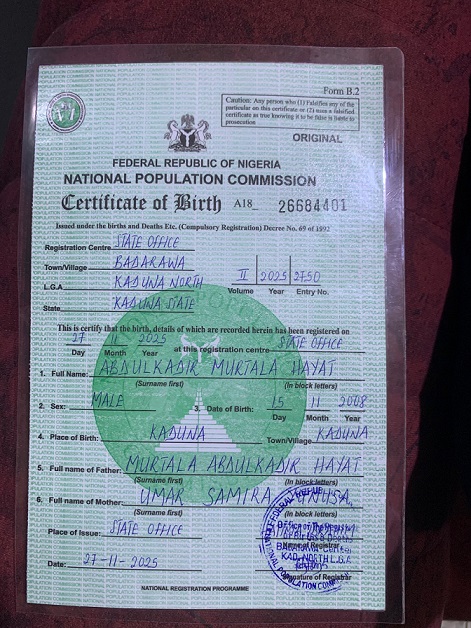 Form B.2
Caution: Any person who (1) Falsifies any of the
particular on this certificate or (2) uses a falsified
certificate as true knowing it to be false is liable to
prosecution
ORIGINAL
FEDERAL REPUBLIC OF NIGERIA
NATIONAL POPULATION COMMISSION
Certificate of Birth A18 26684401
Issued under the births and Deaths Etc. (Compulsory Registration) Decree No. 69 of 1992
Registration Centre STATE OFFICE
Town/Village BADARAWA
L.G.A KADUNA NORTH II 2025 2750
Volume Year Entry No.
State KADUNA STATE
This is certify that the birth, details of which are recorded herein has been registered on
27 11 2025 at this registration centre STATE OFFICE
Day Month Year
1. Full Name: ABDULKADIR MURTALA HAYAT
(Surname first) (In block letters)
2. Sex: MALE 3. Date of Birth: 15 11 2008
Day Month Year
4. Place of Birth: KADUNA Town/Village KADUNA
5. Full name of Father: MURTALA ABDULKADIR HAYAT
(Surname first) (In block letters)
6. Full name of Mother: UMAR SAMIRA
(Surname first) (In block letters)
Place of Issue: STATE OFFICE
Name of Registrar
Date: 27-11-2025
Signature of Registrar
NATIONAL REGISTRATION PROGRAMME